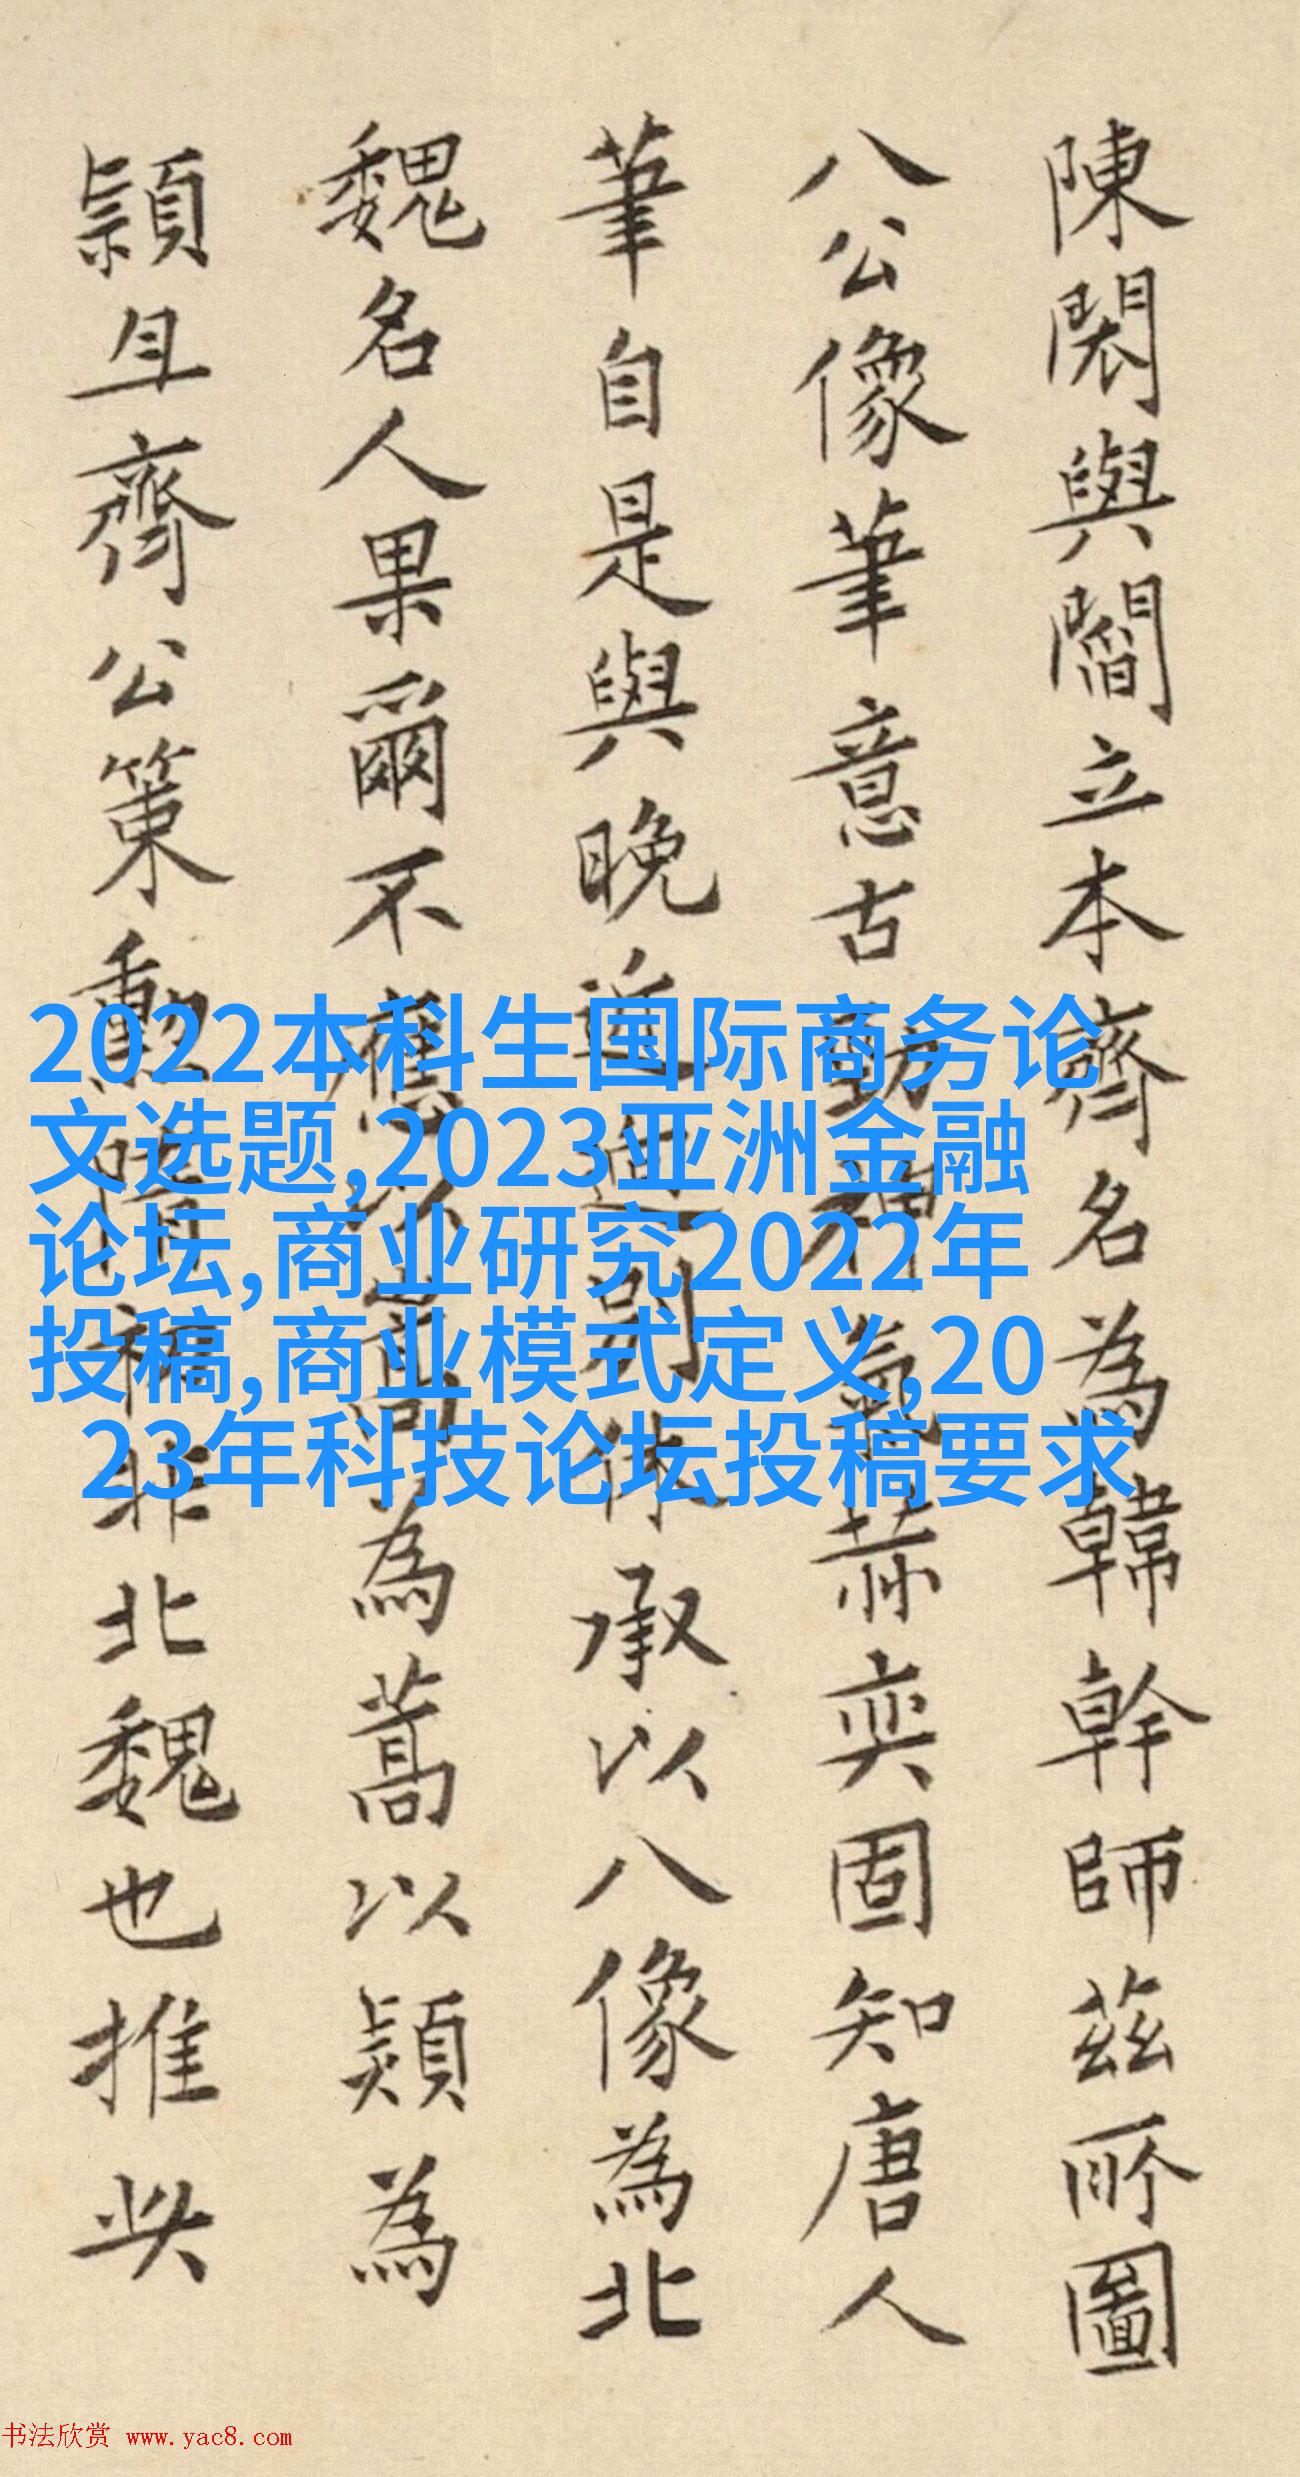 陳閎與閻立本齊名為韓幹師茲所圖
八公像筆意古勁神氣赫奕固知唐人
筆自是與晚近迥別承以八像為北
魏名人果爾不應以嵩為蒿以熲為
頴且齊公策勳隋初非北魏也推
2022本科生国际商务论
文选题,2023亚洲金融
论坛,商业研究2022年
投稿,商业模式定义,20
23年科技论坛投稿要求
书法欣赏 www.yac8.com